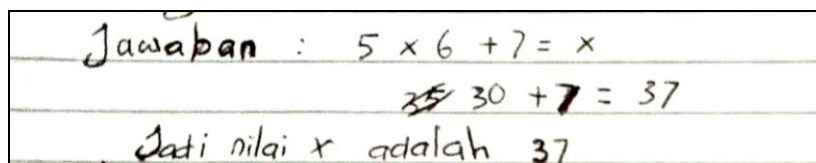 Jawaban : 5 × 6 + 7 = x
30 + 7 = 37
Jadi nilai x adalah 37